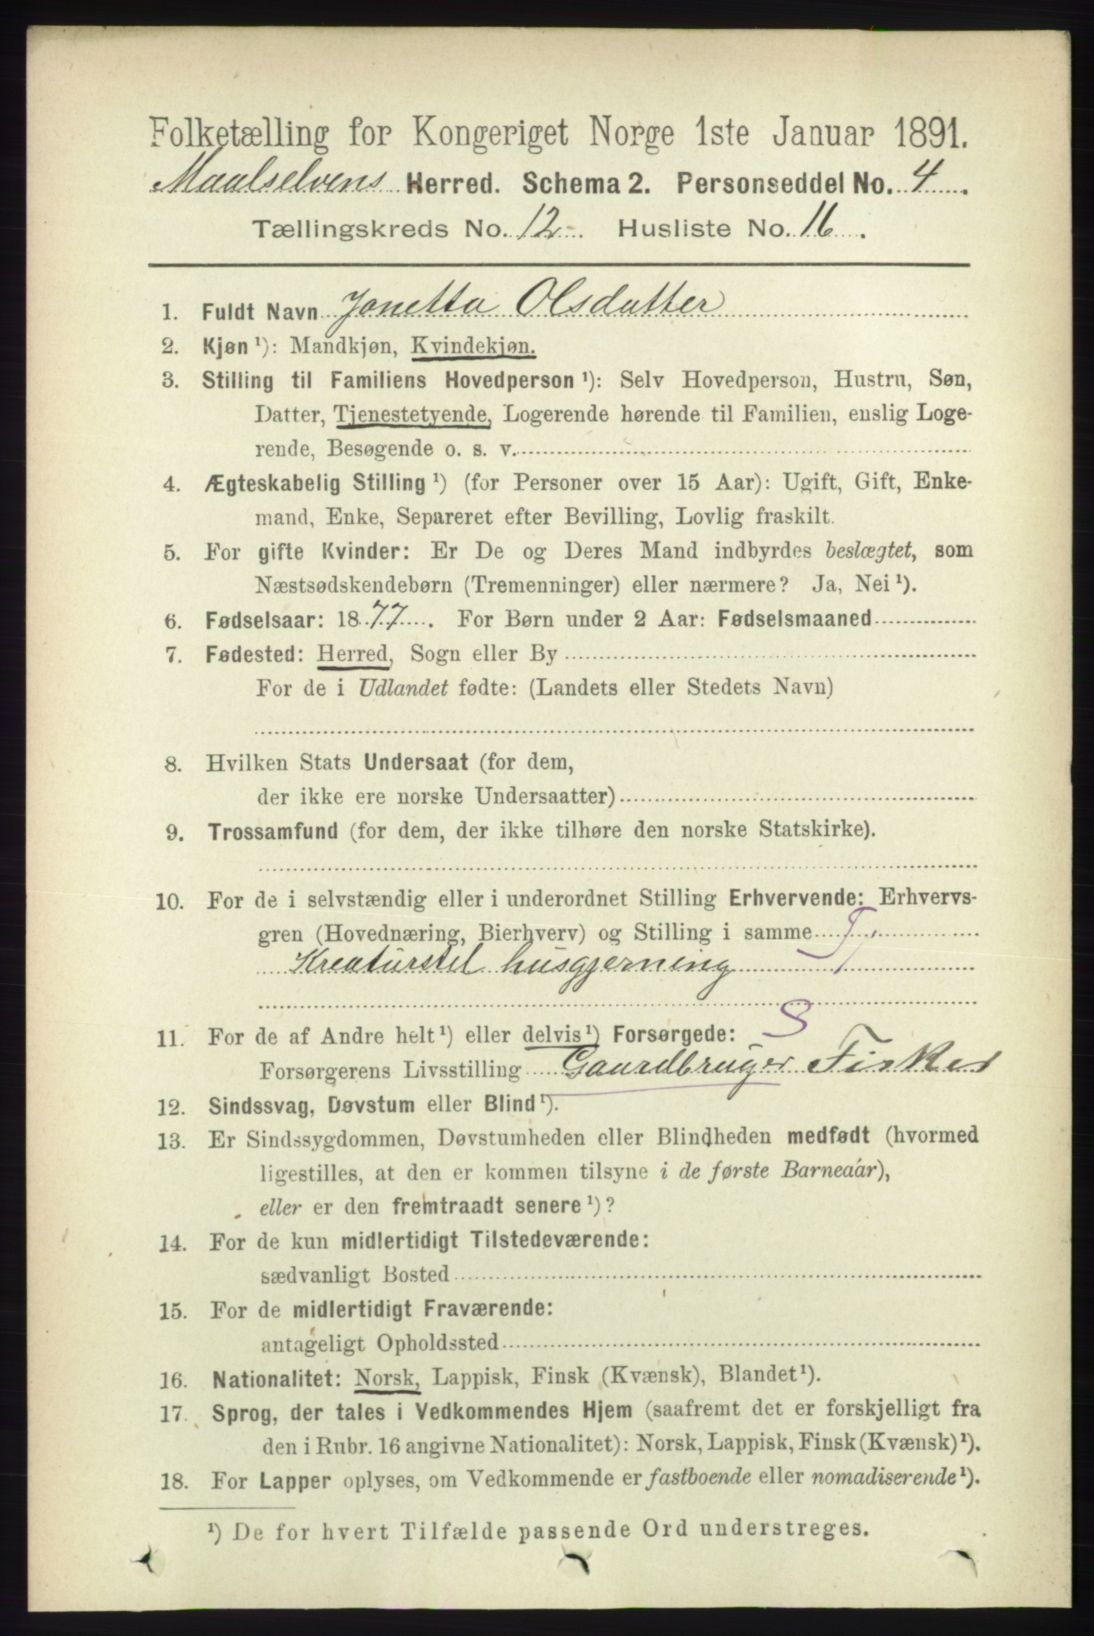 Folketælling for Kongeriget Norge 1ste Januar 1891.
Maalselvens Herred. Schema 2. Personseddel No. 4.
Tællingskreds No. 12. Husliste No. 16.
1. Fuldt Navn Jonetta Olsdatter
2. Kjøn ¹): Mandkjøn, Kvindekjøn.
3. Stilling til Familiens Hovedperson ¹): Selv Hovedperson, Hustru, Søn,
Datter, Tjenestetyende, Logerende hørende til Familien, enslig Loge-
rende, Besøgende o. s. v.
4. Ægteskabelig Stilling ¹) (for Personer over 15 Aar): Ugift, Gift, Enke-
mand, Enke, Separeret efter Bevilling, Lovlig fraskilt.
5. For gifte Kvinder: Er De og Deres Mand indbyrdes beslægtet, som
Næstsødskendebørn (Tremenninger) eller nærmere? Ja, Nei ¹).
6. Fødselsaar: 1877. For Børn under 2 Aar: Fødselsmaaned
7. Fødested: Herred, Sogn eller By
For de i Udlandet fødte: (Landets eller Stedets Navn)
8. Hvilken Stats Undersaat (for dem,
der ikke ere norske Undersaatter)
9. Trossamfund (for dem, der ikke tilhøre den norske Statskirke).
10. For de i selvstændig eller i underordnet Stilling Erhvervende: Erhvervs-
gren (Hovednæring, Bierhverv) og Stilling i samme Tj
Kreaturstel husgjerning
S
11. For de af Andre helt ¹) eller delvis ¹) Forsørgede:
Forsørgerens Livsstilling Gaardbruger Fisker
12. Sindssvag, Døvstum eller Blind ¹).
13. Er Sindssygdommen, Døvstumheden eller Blindheden medfødt (hvormed
ligestilles, at den er kommen tilsyne i de første Barneaar),
eller er den fremtraadt senere ¹)?
14. For de kun midlertidigt Tilstedeværende:
sædvanligt Bosted
15. For de midlertidigt Fraværende:
antageligt Opholdssted
16. Nationalitet: Norsk, Lappisk, Finsk (Kvænsk), Blandet ¹).
17. Sprog, der tales i Vedkommendes Hjem (saafremt det er forskjelligt fra
den i Rubr. 16 angivne Nationalitet): Norsk, Lappisk, Finsk (Kvænsk) ¹).
18. For Lapper oplyses, om Vedkommende er fastboende eller nomadiserende ¹).
¹) De for hvert Tilfælde passende Ord understreges.